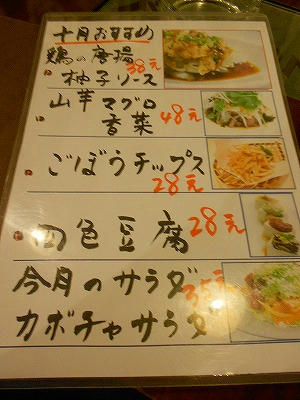 十月おすすめ
鶏の唐揚
柚子ソース 38元
山芋マグロ
香菜 48元
ごぼうチップス
28元
四色豆腐 28元
今月のサラダ 35元
カボチャサラダ